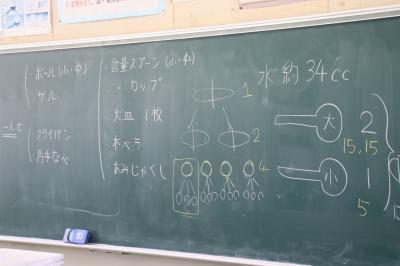 ボール(小・中)
ザル
一人で
・フライパン
・片手なべ
・計量スプーン(小・中)
・〃 カップ
・大皿 1枚
・木ベラ
・あみじゃくし
1
2
4
水約34cc
大 2
15,15
小 1
5